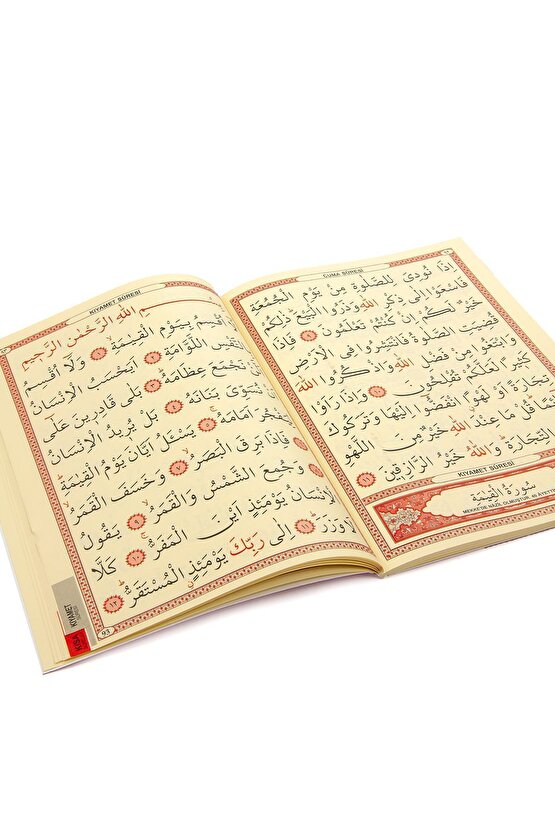 CUMA SÛRESİ
اِذَا نُودِىَ لِلصَّلٰوةِ مِنْ يَوْمِ الْجُمُعَةِ
فَاسْعَوْا اِلٰى ذِكْرِ اللّٰهِ وَذَرُوا الْبَيْعَ ذٰلِكُمْ
خَيْرٌ لَكُمْ اِنْ كُنْتُمْ تَعْلَمُونَ ٩ فَاِذَا
قُضِيَتِ الصَّلٰوةُ فَانْتَشِرُوا فِى الْاَرْضِ
وَابْتَغُوا مِنْ فَضْلِ اللّٰهِ وَاذْكُرُوا اللّٰهَ
كَثِيرًا لَعَلَّكُمْ تُفْلِحُونَ ١٠ وَاِذَا رَاَوْا
تِجَارَةً اَوْ لَهْوًا انْفَضُّوا اِلَيْهَا وَتَرَكُوكَ
قُلْ مَا عِنْدَ اللّٰهِ خَيْرٌ مِنَ اللَّهْوِ
التِّجَارَةِ وَاللّٰهُ خَيْرُ الرَّازِقِينَ ١١
KIYAMET SÛRESİ
سُورَةُ الْقِيٰمَةِ
MEKKE'DE NAZİL OLMUŞTUR. 40 AYET
KIYAMET SÛRESİ
اللّٰهِ الرَّحْمٰنِ الرَّحِيمِ
اُقْسِمُ بِيَوْمِ الْقِيٰمَةِ ١ وَلَا اُقْسِمُ
بِالنَّفْسِ اللَّوَّامَةِ ٢ اَيَحْسَبُ الْاِنْسَانُ
نَجْمَعَ عِظَامَهُ ٣ بَلٰى قَادِرِينَ عَلٰى
نُسَوِّىَ بَنَانَهُ ٤ بَلْ يُرِيدُ الْاِنْسَانُ
لِيَفْجُرَ اَمَامَهُ ٥ يَسْئَلُ اَيَّانَ يَوْمُ الْقِيٰمَةِ
فَاِذَا بَرِقَ الْبَصَرُ ٧ وَخَسَفَ الْقَمَرُ
وَجُمِعَ الشَّمْسُ وَالْقَمَرُ ٩ يَقُولُ
الْاِنْسَانُ يَوْمَئِذٍ اَيْنَ الْمَفَرُّ ١٠ كَلَّا
لَا وَزَرَ ١١ اِلٰى رَبِّكَ يَوْمَئِذٍ الْمُسْتَقَرُّ ١٢
93
KIYAMET
SÛRESİ
KISA